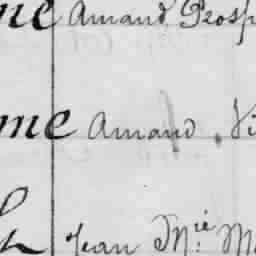 me Amand Prosp
me Amand, Vi
h Jean M.ie M